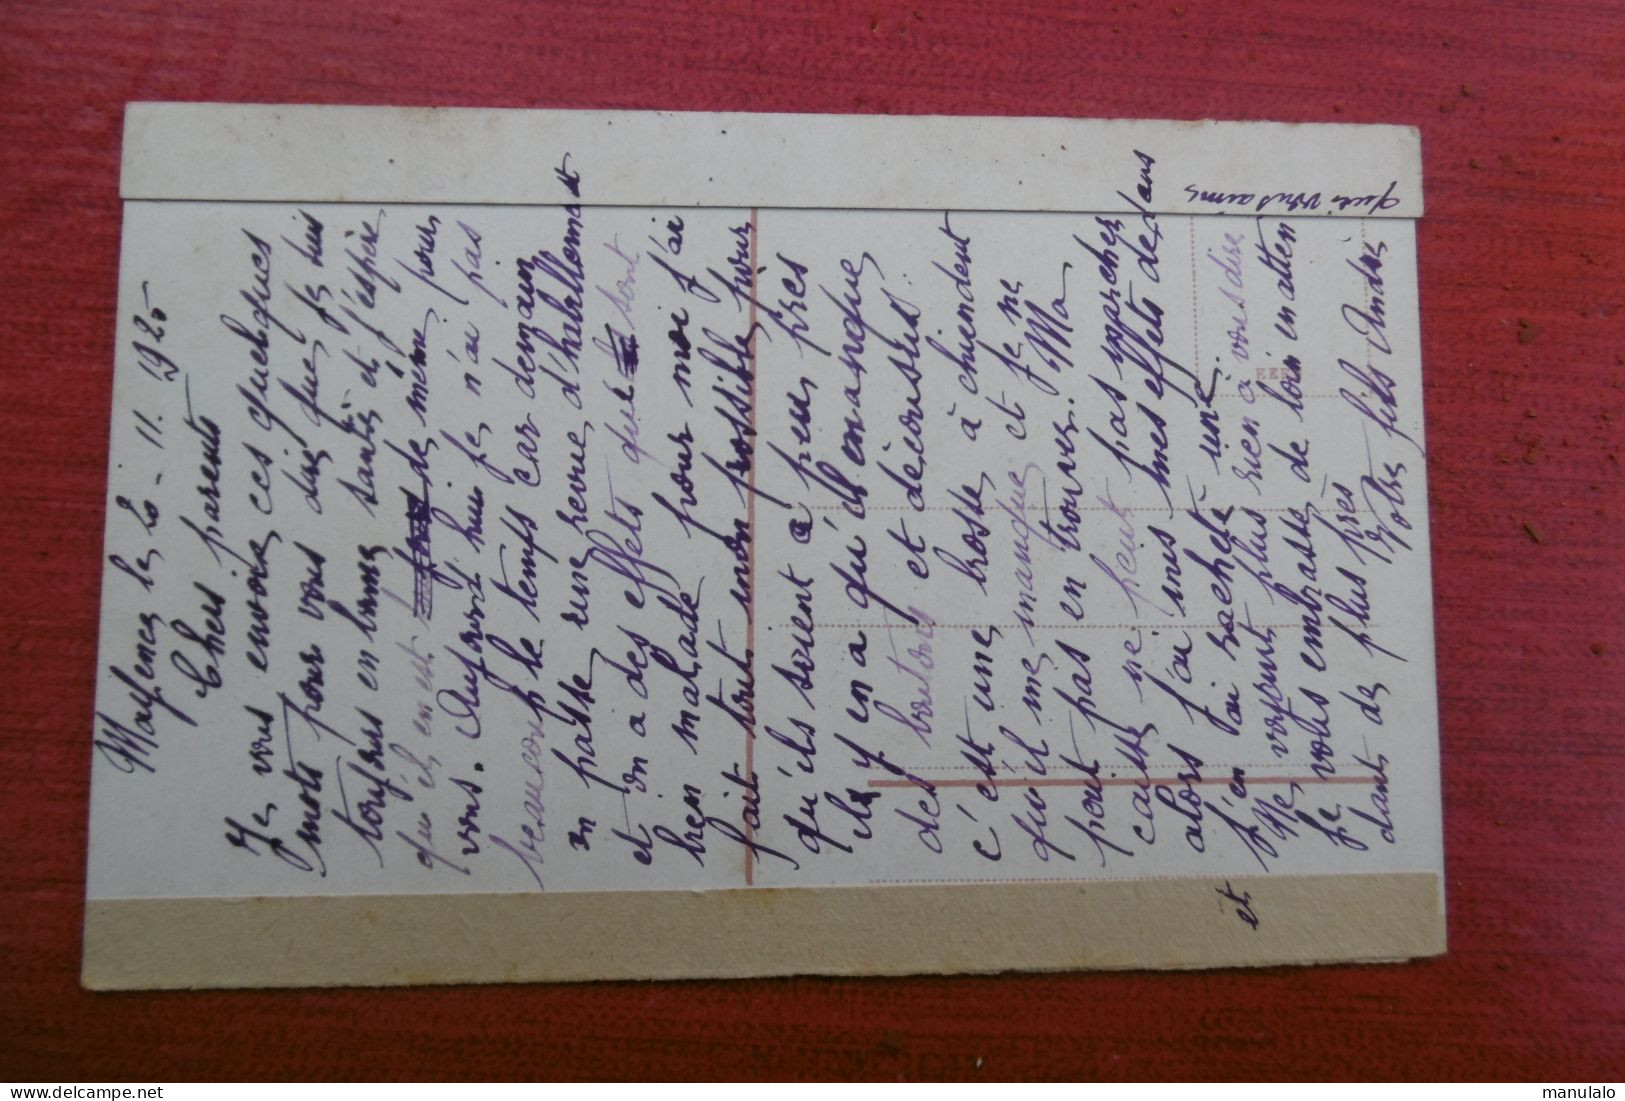 Mayence le 20 - 11. 1925
Chers parents
Je vous envoie ces quelques
mots pour vous dire que je suis
toujours en bonne santé et j'espère
qu'il en est de même pour
vous. Aujourd'hui je n'ai pas
beaucoup le temps car demain
on passe une revue d'habillement
et on a des effets que sont
bien malade pour moi j'ai
fait tout mon possible pour
qu'ils soient à peu près
ils y en a qu'il en manque
des boutons et décousus.
c'est une brosse à chiendent
qu'il me manque et je ne
peut pas en trouver. Ma
caisse ne peut pas approcher
alors j'ai mis mes effets dedans
et j'en ai racheté une.
Ne voyant plus rien a vous dire
je vous embrasse de loin en atten
dant de plus près
Votre fils
qui vous aime
EERS
manulalo
delcampe.net